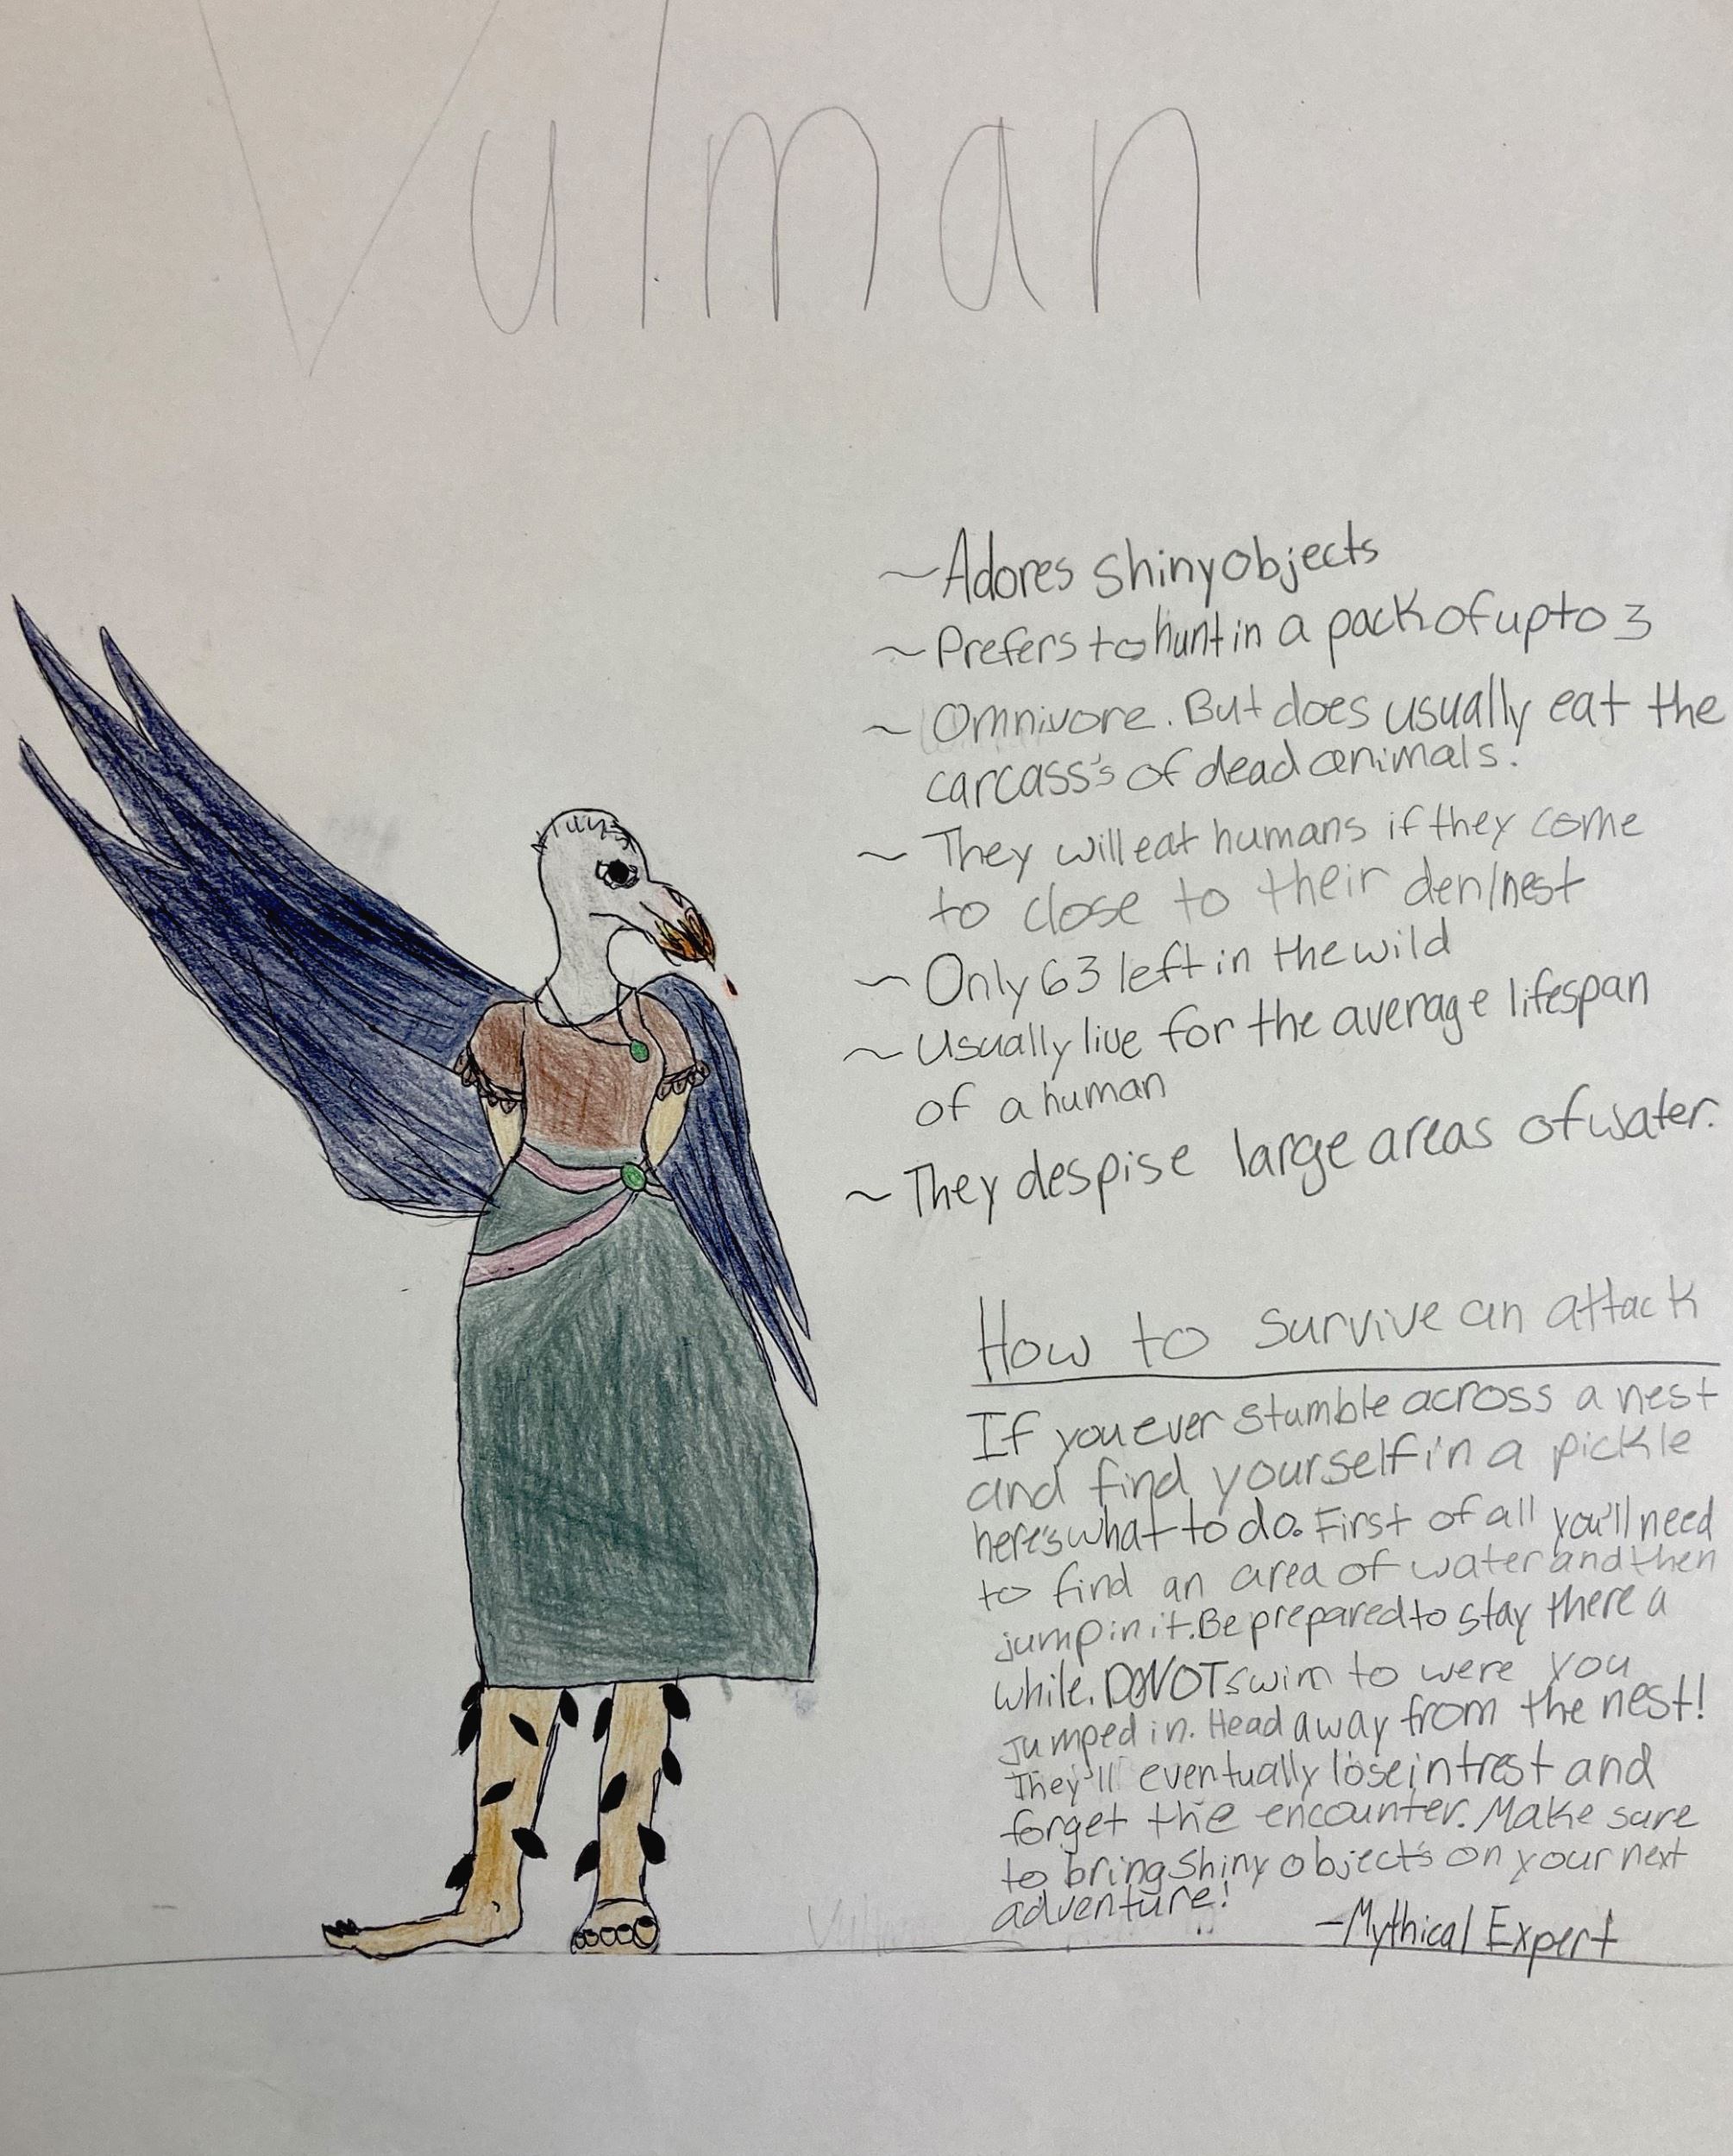 Vulman
~Adores shiny objects
~Prefers to hunt in a pack of up to 3
~ Omnivore. But does usually eat the
carcass's of dead animals.
~ They will eat humans if they come
to close to their den/nest
~ Only 63 left in the wild
~ Usually live for the average lifespan
of a human
~They despise large areas of water.
How to survive an attack
If you ever stumble across a nest
and find yourself in a pickle
here's what to do. First of all you'll need
to find an area of water and then
jump in it. Be prepared to stay there a
while. DO NOT swim to were you
jumped in. Head away from the nest!
They'll eventually lose intrest and
forget the encounter. Make sure
to bring shiny objects on your next
adventure!
-Mythical Expert